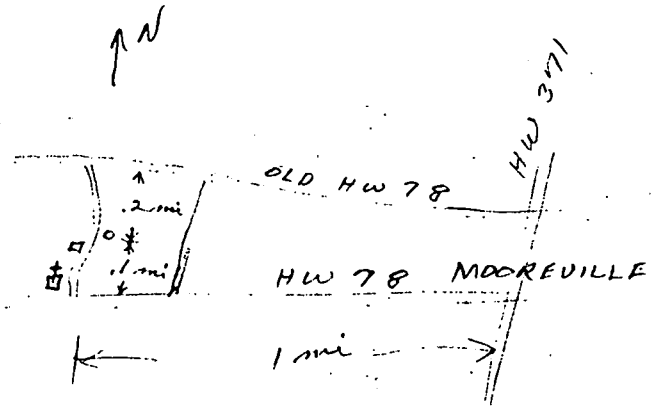 N
HW 371
OLD HW 78
.2 mi
.1 mi
HW 78 MOOREVILLE
1 mi